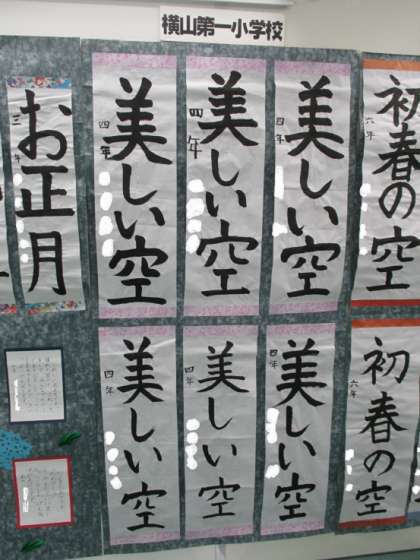 横山第一小学校
お正月
三年
美しい空
四年
美しい空
四年
美しい空
四年
初春の空
六年
美しい空
四年
美しい空
四年
美しい空
四年
初春の空
六年